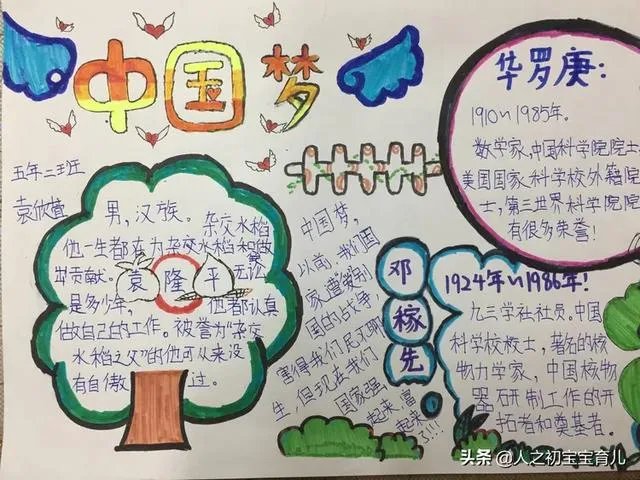 中国梦
五年二班
男，汉族。杂交水稻
他一生都在为杂交水稻和做
出贡献。袁隆平无论
是多少年，他都认真
做自己的工作。被誉为“杂交
水稻之父”的他可从来没
有自傲过。
中国梦，
以前，我们国
家遭受别
国的战争，
害得我们民不聊
生，但现在我们
国家强
起来，富
起来了!!!
华罗庚：
1910~1985年。
数学家，中国科学院院士
美国国家科学校外籍院
士，第三世界科学院院
有很多荣誉！
邓稼先
1924年~1986年！
九三学社社员。中国
科学校校士，著名的核
物力学家，中国核物
器研制工作的开
拓者和奠基者。
头条 @人之初宝宝育儿